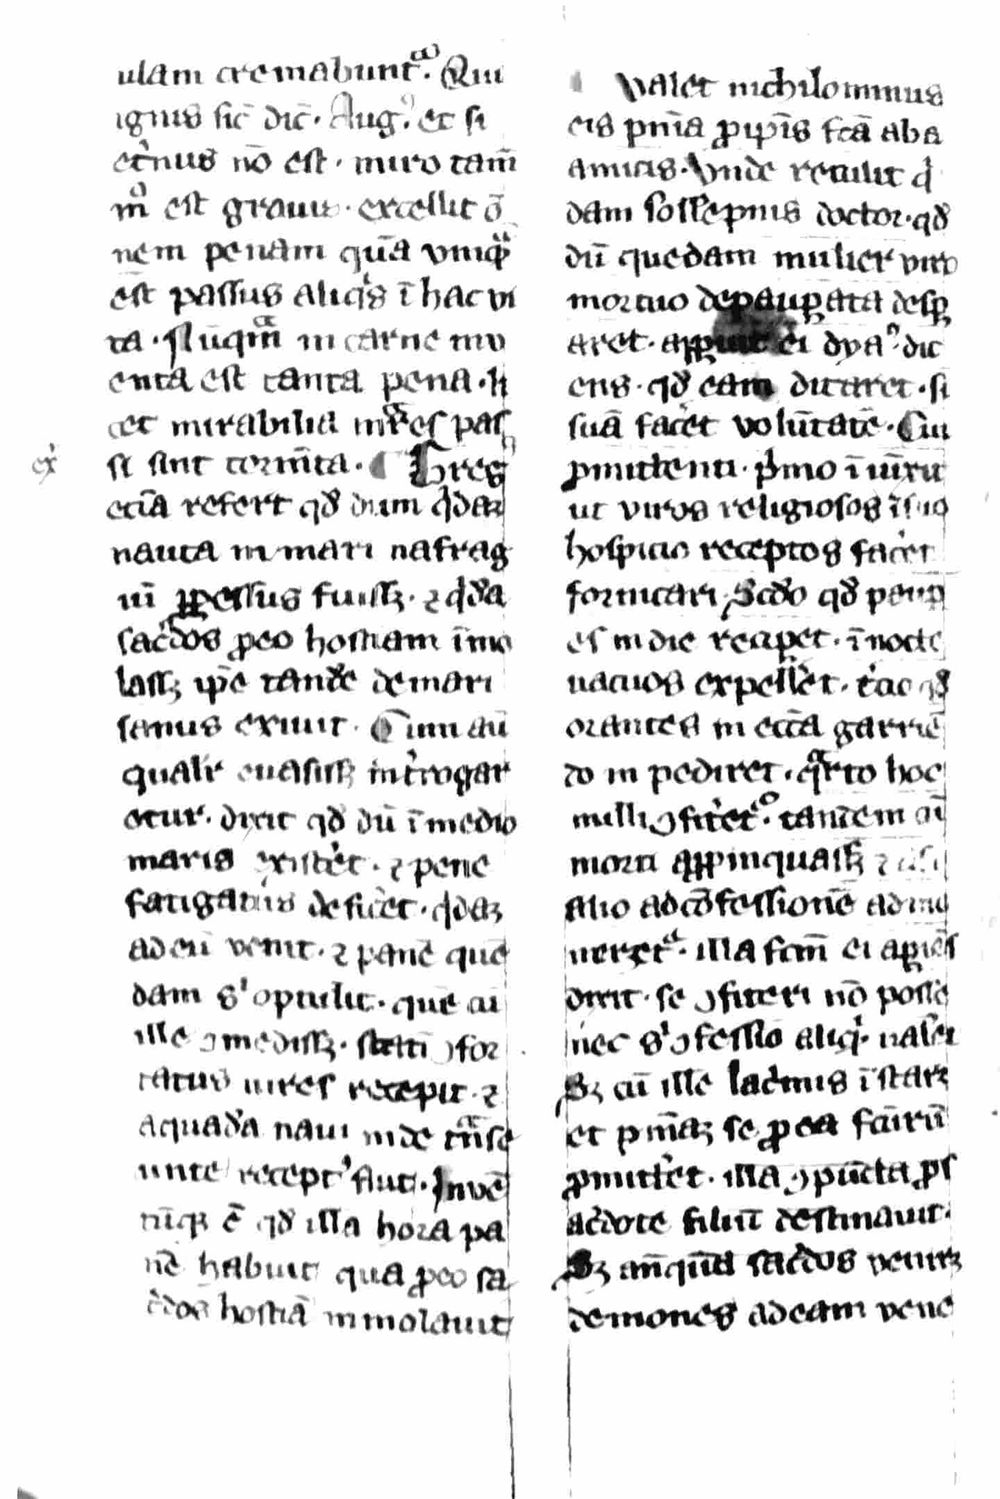 ulam cremabunt͛ᵃ. Qui
ignis sic̄ dic̄. Aug.⁹ et si
et̾nus nō est. miro tam̄
m̊ est grauis. excellit ō
nem penam quā vnq̄ᵃ
est passus aliqͥs ī hac vi
ta. Nūqᵃm in carne inu
enta est tanta pena. li
cet mirabilia mr̄es pas
si sint torm̄ta. Greg
eciā refert qd̛ dum qͥdaꝫ
nauta in mari nafrag
iū ꝑpessus fuissꝫ. ⁊ qͥd̛a
sac̾dos ꝓ eo hostiam īmo
lassꝫ ip̄e tandē de mari
sanus exiuit. Cum aū
qualiť euasissꝫ int̾rogar
etur. dixit qd̛ dū ī medio
maris existe̾t. ⁊ pene
fatigatus defice̾t. qͥdaꝫ
ad eū venit. ⁊ panē quē
dam s' optulit. quē cū
ille ꝯmedissꝫ. statī ꝯfor
tatus uires recepit. ⁊
a quad̛a naui inde trᵃnse
unte recept⁹ fuit. Inuē
tūqꝫ ē qd̛ illa hora pa
nē habuit qua ꝓ eo sa
c̾dos hostiā inmolauit
Valet nichilominus
eis pn̄ia ꝓ ip̄is fc̄a ab a
amicis. Vnde retulit qͥ
dam sollepnis doctor. qd̛
dū quedam mulier viro
mortuo depauꝑata desꝑ
aret. apparuit ei dya⁹. dic
ens. qd̛ eam ditaret. si
suā face̾t volūtatē. Cui
ꝓmittenti. pͥmo īiūxit
ut viros religiosos ī suo
hospicio receptos face̾t
fornicari. Scd̛o qd̛ pauꝑ
es in die recipet. ī nocte
uacuos expelle̾t. t̾cio qd̛
orantes in ecc̄a garriē
do inpediret. qᵃrto hoc
nulli ꝯfite̾t͛. tandem cū
morti appinquassꝫ ⁊ a
filio ad ꝯfessionē ad mo
neret͛. illa ei apiēs
dixit. se ꝯfiteri nō posse
nec s' ꝯfessio aliqͥd vale̾t
Sꝫ cū ille lac̾mis īstaret
et pn̄iaꝫ se ꝓ ea fac̄turū
ꝓmitte̾t. illa ꝯpūcta ꝓ s
ac̾dote filiū destinauit.
Sꝫ an̄quā sac̾dos veniret
demones ad eam vene
ex̾